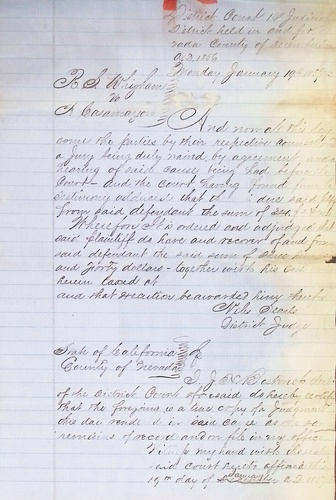 District Court 14 Judicial
District held in and for
vada County of
A.D. 1856
Monday January 19th
R. S. Wigham
vs
A Casamayou
And now at this day
come the parties by their respective counsel
a Jury being duly waived, by agreement, and
hearing of said cause being had before
Court – and the Court having found from
testimony adduced that
from said defendant the sum of
Wherefore it is ordered and adjudged that
said plaintiff do have and recover of and from
said defendant the said sum of
and forty dollars – together with his costs
herein taxed at
and that execution be awarded him therefor
Niles Searls
District Judge
State of California
County of Nevada
I, J. H. Bostwick clerk
of the District Court aforesaid do hereby certify
that the foregoing is a true copy of a Judgment
this day rendered in said cause as the same
remains of record and on file in my office
Witness my hand with the seal
said court hereto affixed this
19th day of January A.D. 185